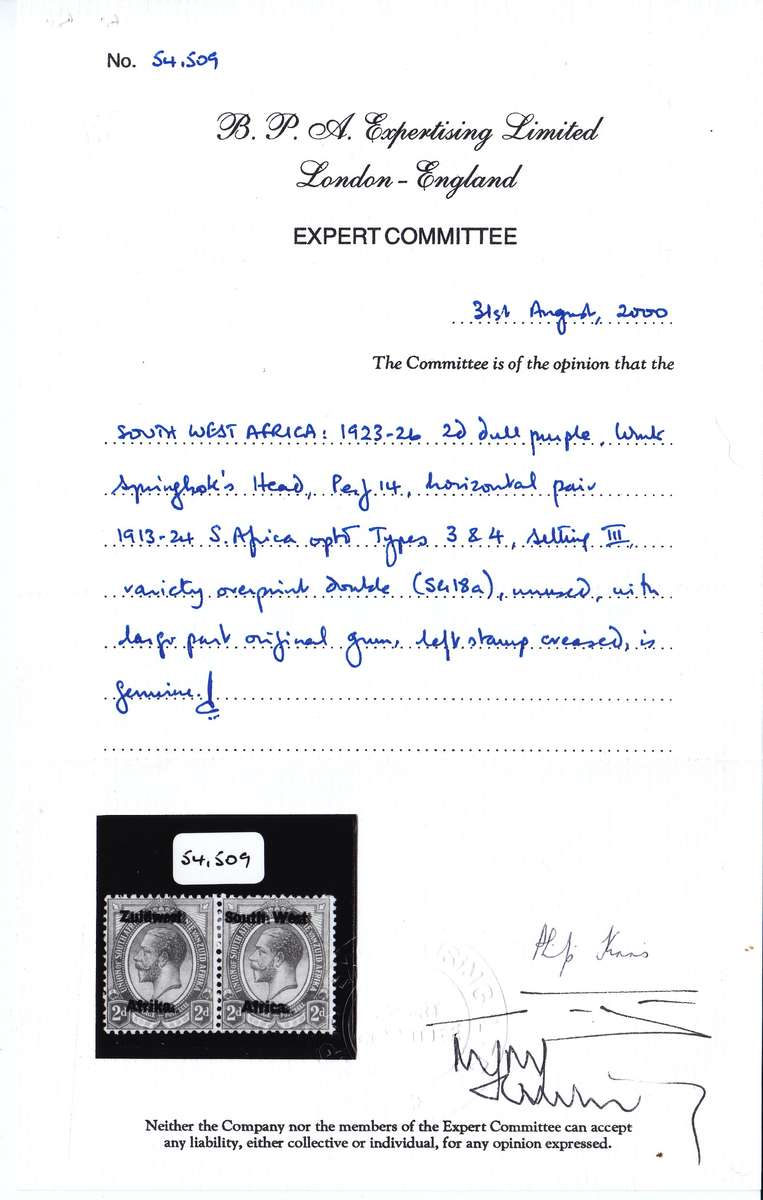 No. 54,509
B. P. A. Expertising Limited
London - England
EXPERT COMMITTEE
31st August, 2000
The Committee is of the opinion that the
SOUTH WEST AFRICA: 1923-26 2d dull purple, Wmk
Springbok's Head, Perf 14, horizontal pair
1913-24 S. Africa optd Types 3 & 4, setting III,
variety overprint double (SG18a), unused, with
large part original gum, left stamp creased, is
genuine.
54,509
Zuidwest South West
UNION OF SOUTH AFRICA UNIE VAN ZUID AFRIKA
Afrika. Africa.
2d 2d 2d 2d
Neither the Company nor the members of the Expert Committee can accept
any liability, either collective or individual, for any opinion expressed.